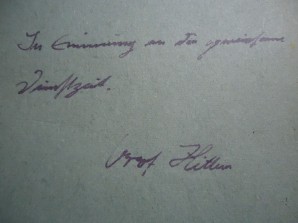 Zur Erinnerung an die gemeinsame
Dienstzeit.
Adolf Hitler